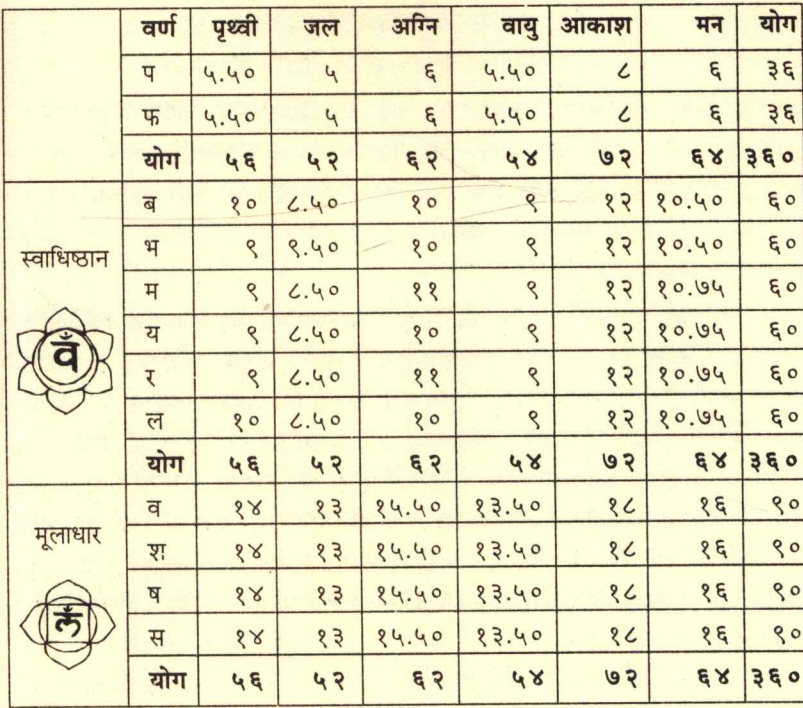 वर्ण पृथ्वी जल अग्नि वायु आकाश मन योग
प ५.५० ५ ६ ५.५० ८ ६ ३६
फ ५.५० ५ ६ ५.५० ८ ६ ३६
योग ५६ ५२ ६२ ५४ ७२ ६४ ३६०
ब १० ८.५० १० ९ १२ १०.५० ६०
स्वाधिष्ठान भ ९ ९.५० १० ९ १२ १०.५० ६०
म ९ ८.५० ११ ९ १२ १०.७५ ६०
वँ य ९ ८.५० १० ९ १२ १०.७५ ६०
र ९ ८.५० ११ ९ १२ १०.७५ ६०
ल १० ८.५० १० ९ १२ १०.७५ ६०
योग ५६ ५२ ६२ ५४ ७२ ६४ ३६०
व १४ १३ १५.५० १३.५० १८ १६ ९०
मूलाधार श १४ १३ १५.५० १३.५० १८ १६ ९०
ष १४ १३ १५.५० १३.५० १८ १६ ९०
लँ स १४ १३ १५.५० १३.५० १८ १६ ९०
योग ५६ ५२ ६२ ५४ ७२ ६४ ३६०